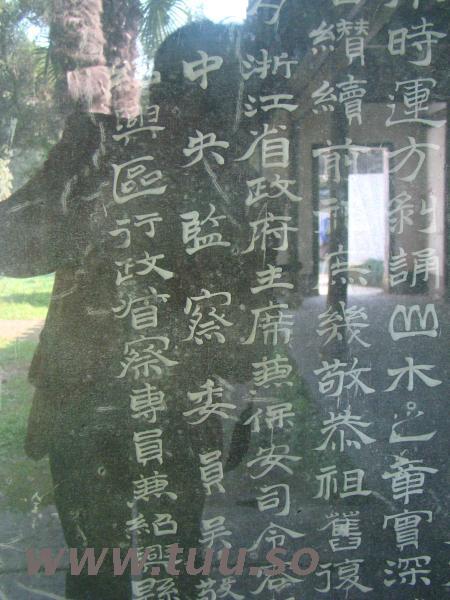 時運方剝誦木之章實深
纘續前庶幾敬恭祖舊復
浙江省政府主席兼保安司令
中央監察委員吳敬
興區行政督察專員兼紹興縣
www.tuu.so